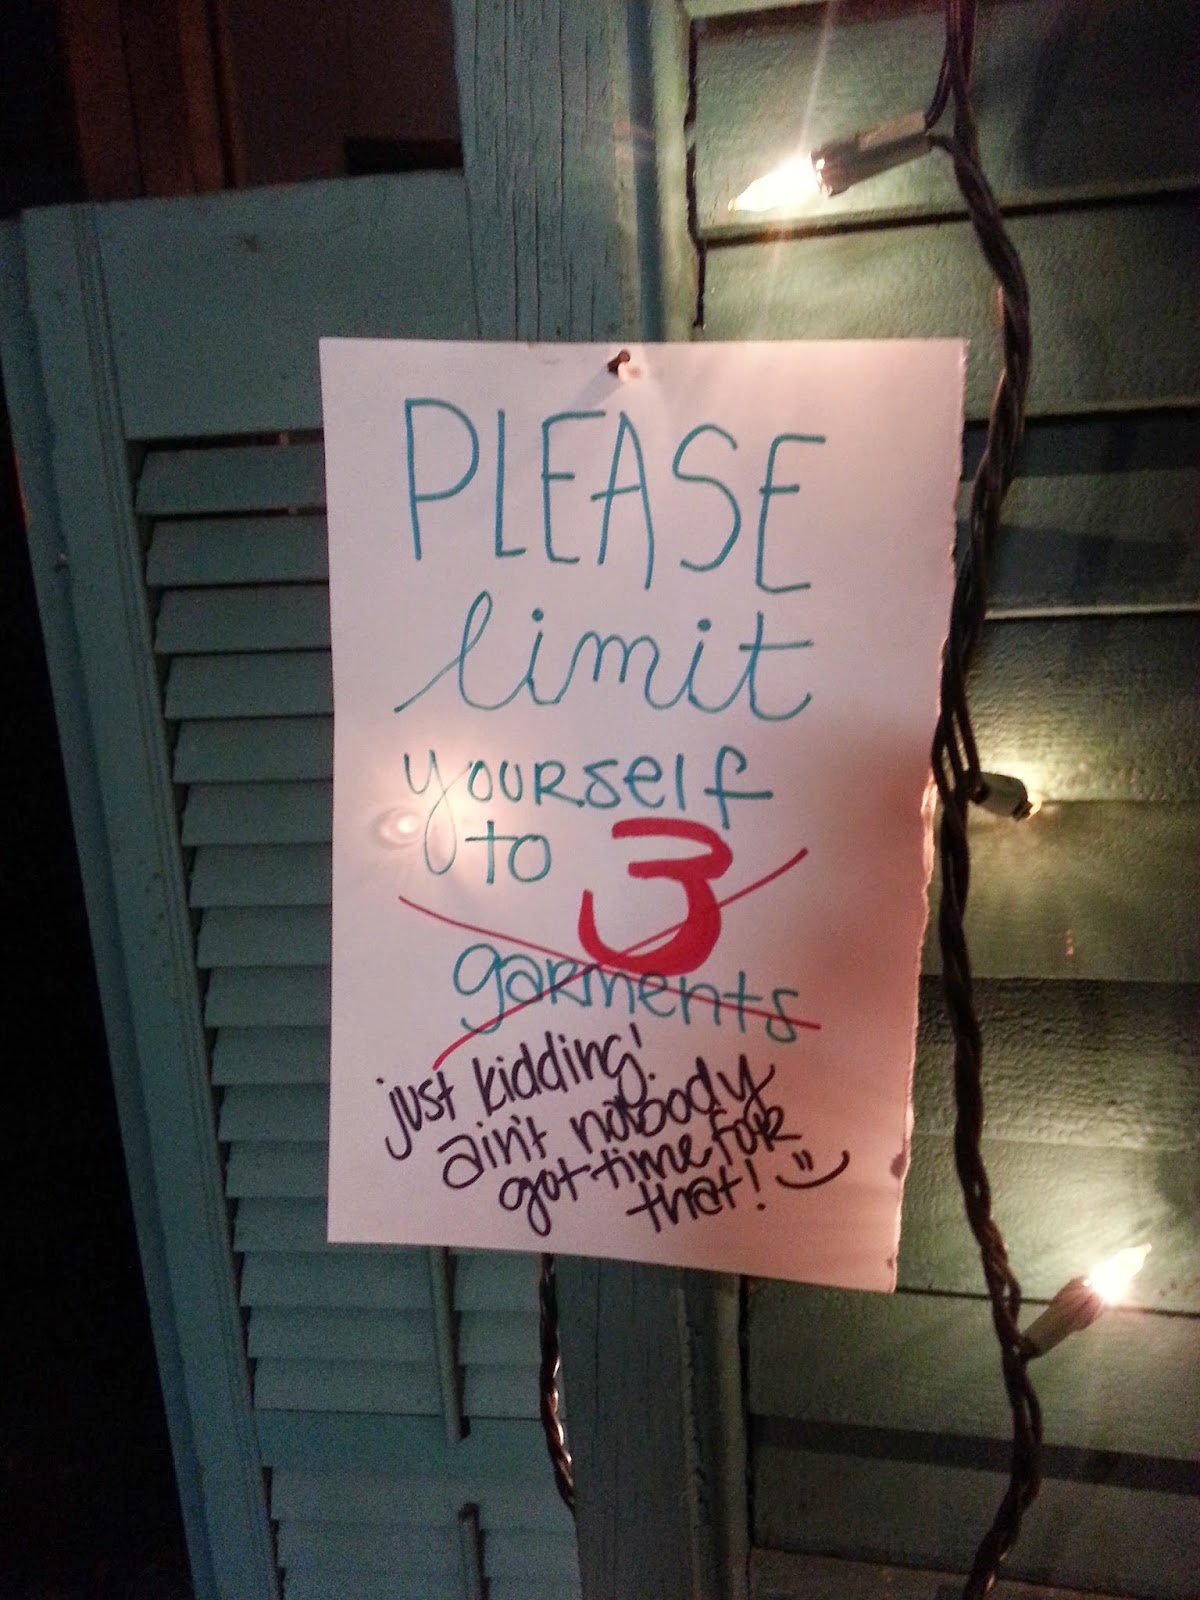 PLEASE
limit
yourself
to 3
garments
just kidding!
ain't nobody
got time for
that! =)